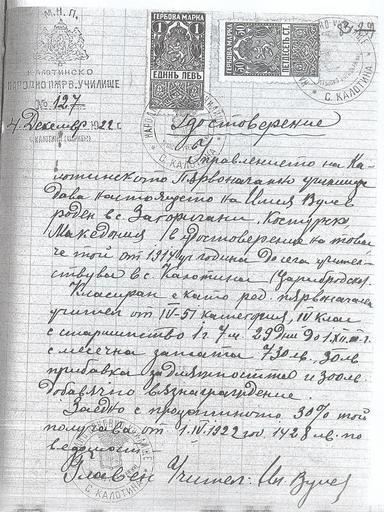 М. Н. П.
КАЛОТИНСКО
НАРОДНО ПЪРВ. УЧИЛИЩЕ
№ 127
4 Декемврий 1922 г.
с. КАЛОТИНА
ГЕРБОВА МАРКА
1 1
ЕДИНЪ ЛЕВЪ
ГЕРБОВА МАРКА
50 50
ПЕТДЕСЕТЬ СТ.
С. КАЛОТИНА
Удостоверение
Управлението на Ка-
лотинското първоначално училище
дава настоящето на Илия Вулев
роден в с. Загоричани, Костурско
Македония в удостоверение на това
че той от 1914 уч. година до сега учител-
ствува в с. Калотина (Царибродско).
Класиран е като ред. първоначален
учител от IV категория, IV клас
с старшинство 1 г. 7 м. 29 дни до
с месечна заплата 730 лв., 30 лв.
прибавка за длъжността и 300 лв.
добавъчно възнаграждение.
Заедно с процентното 30% той
получава от 1.IV.1922 год. 1428 лв. по
ведомост
Главен Учител: Ил. Вулев
С. КАЛОТИНА